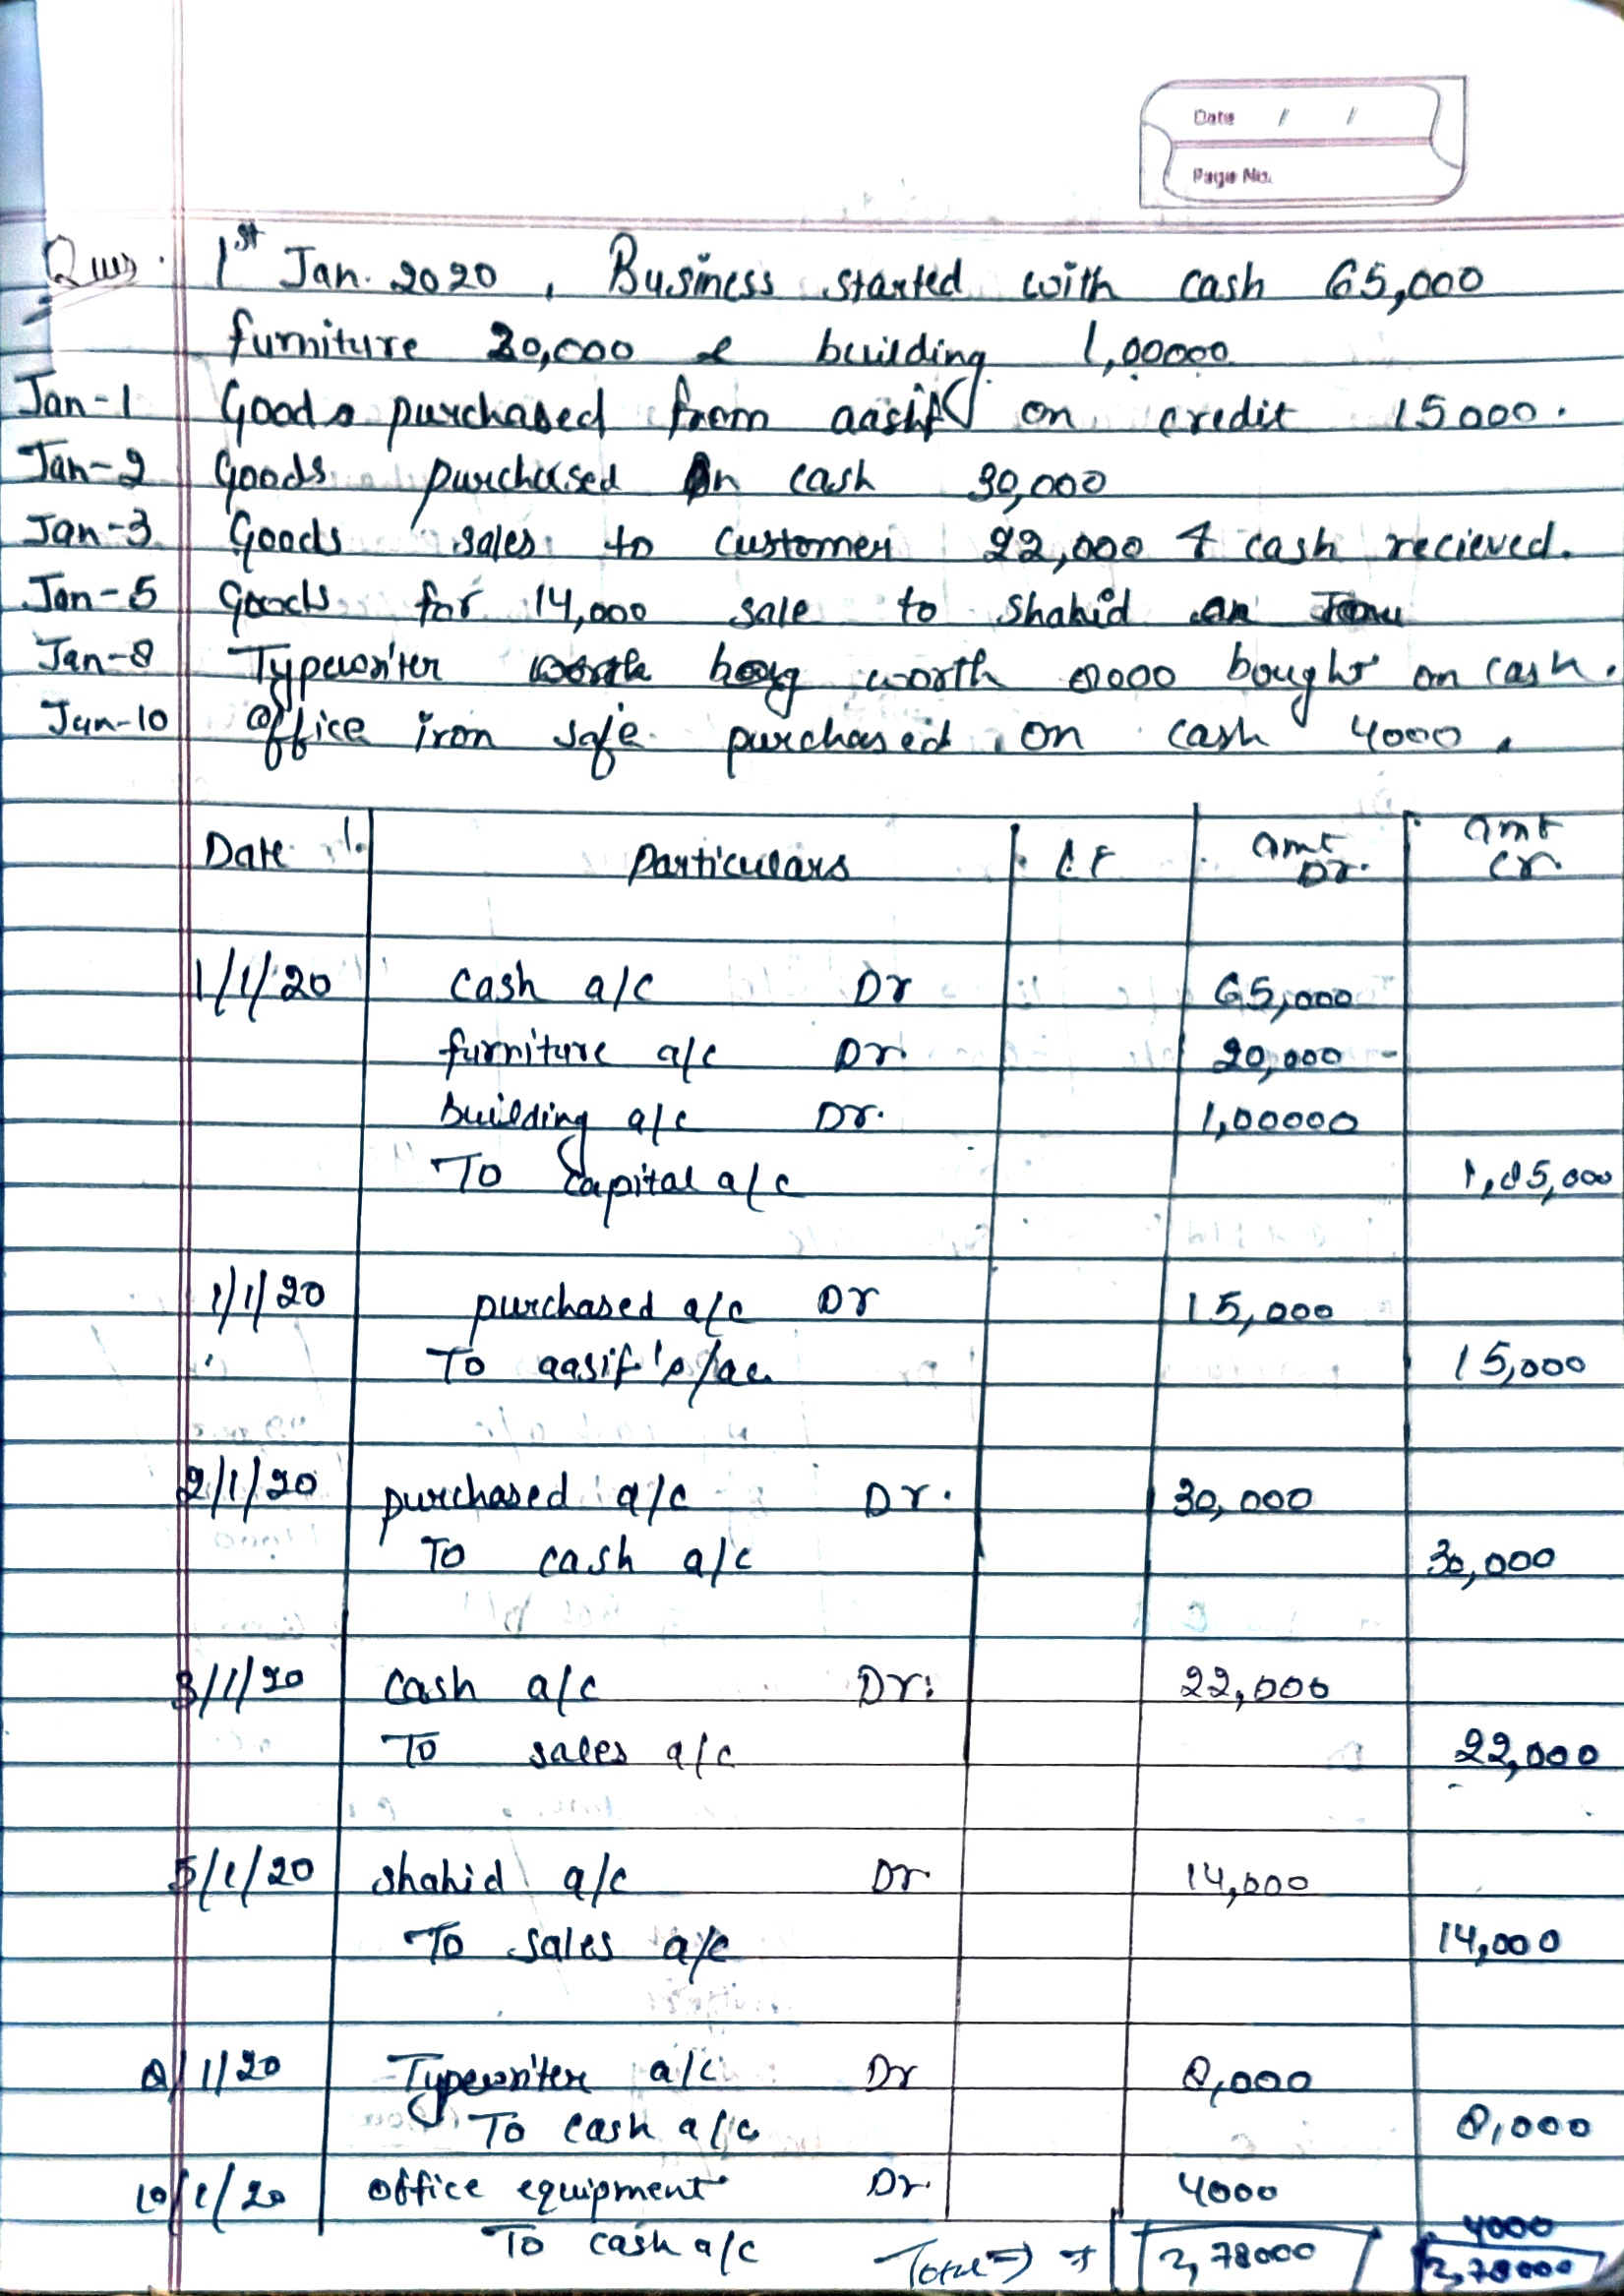 Date / /
Page No.
Ques. 1st Jan. 2020, Business started with cash 65,000
furniture 20,000 & building 1,00000
Jan-1 Goods purchased from aasif on credit 15000.
Jan-2 Goods purchased on cash 30,000
Jan-3 Goods sales to customer 22,000 & cash recieved.
Jan-5 Goods for 14,000 sale to shahid
Jan-8 Typewriter worth 8000 bought on cash.
Jan-10 office iron safe purchased on cash 4000.
Date Particulars L.F amt Dr. amt Cr.
1/1/20 Cash a/c Dr 65,000
furniture a/c Dr. 20,000
building a/c Dr. 1,00000
To Capital a/c 1,85,000
1/1/20 purchased a/c Dr 15,000
To aasif's/ac 15,000
2/1/20 purchased a/c Dr. 30,000
To cash a/c 30,000
3/1/20 Cash a/c Dr. 22,000
To sales a/c 22,000
5/1/20 shahid a/c Dr 14,000
To sales a/c 14,000
8/1/20 Typewriter a/c Dr 8,000
To cash a/c 8,000
10/1/20 office equipment Dr. 4000
To cash a/c 4000
Total => 2,78000 2,78000